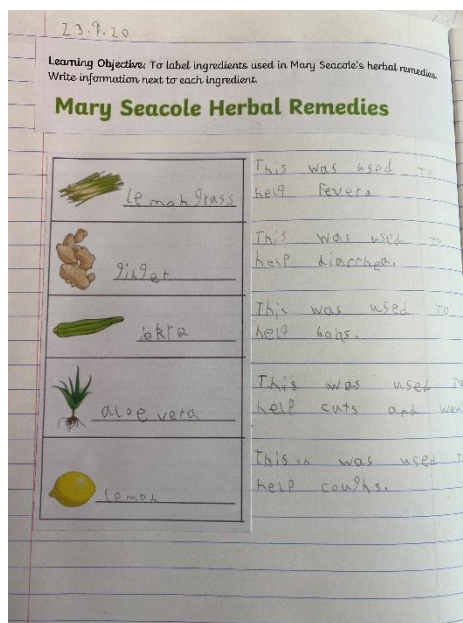 23.9.20
Learning Objective: To label ingredients used in Mary Seacole's herbal remedies.
Write information next to each ingredient.
Mary Seacole Herbal Remedies
lemon grass
This was used to
help fevers
ginger
This was used to
help diarrhea.
okra
This was used to
help boils.
aloe vera
This was used
help cuts and
lemon
This was used
help coughs.